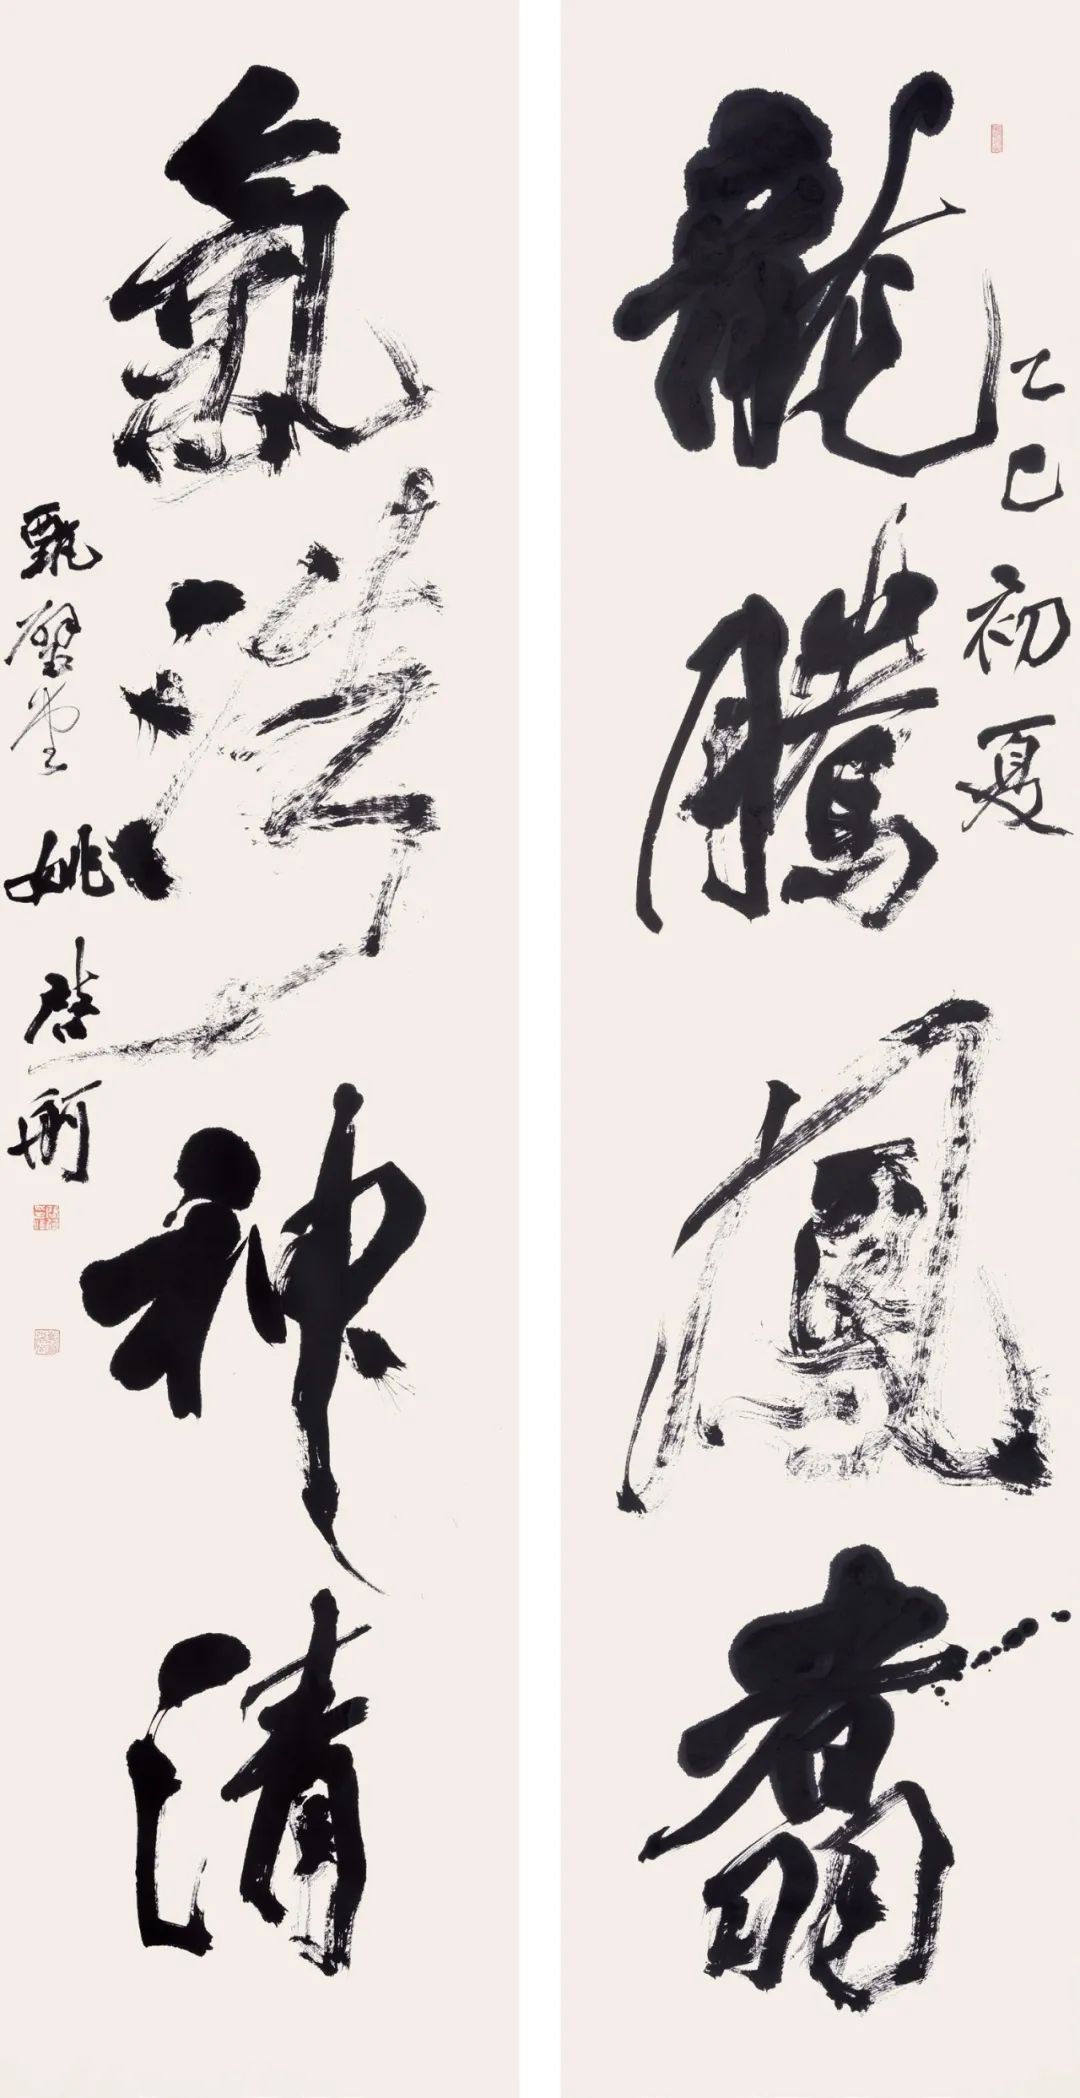 龍騰鳳翥
乙巳初夏
氣浩神清
甄堂姚啓舸